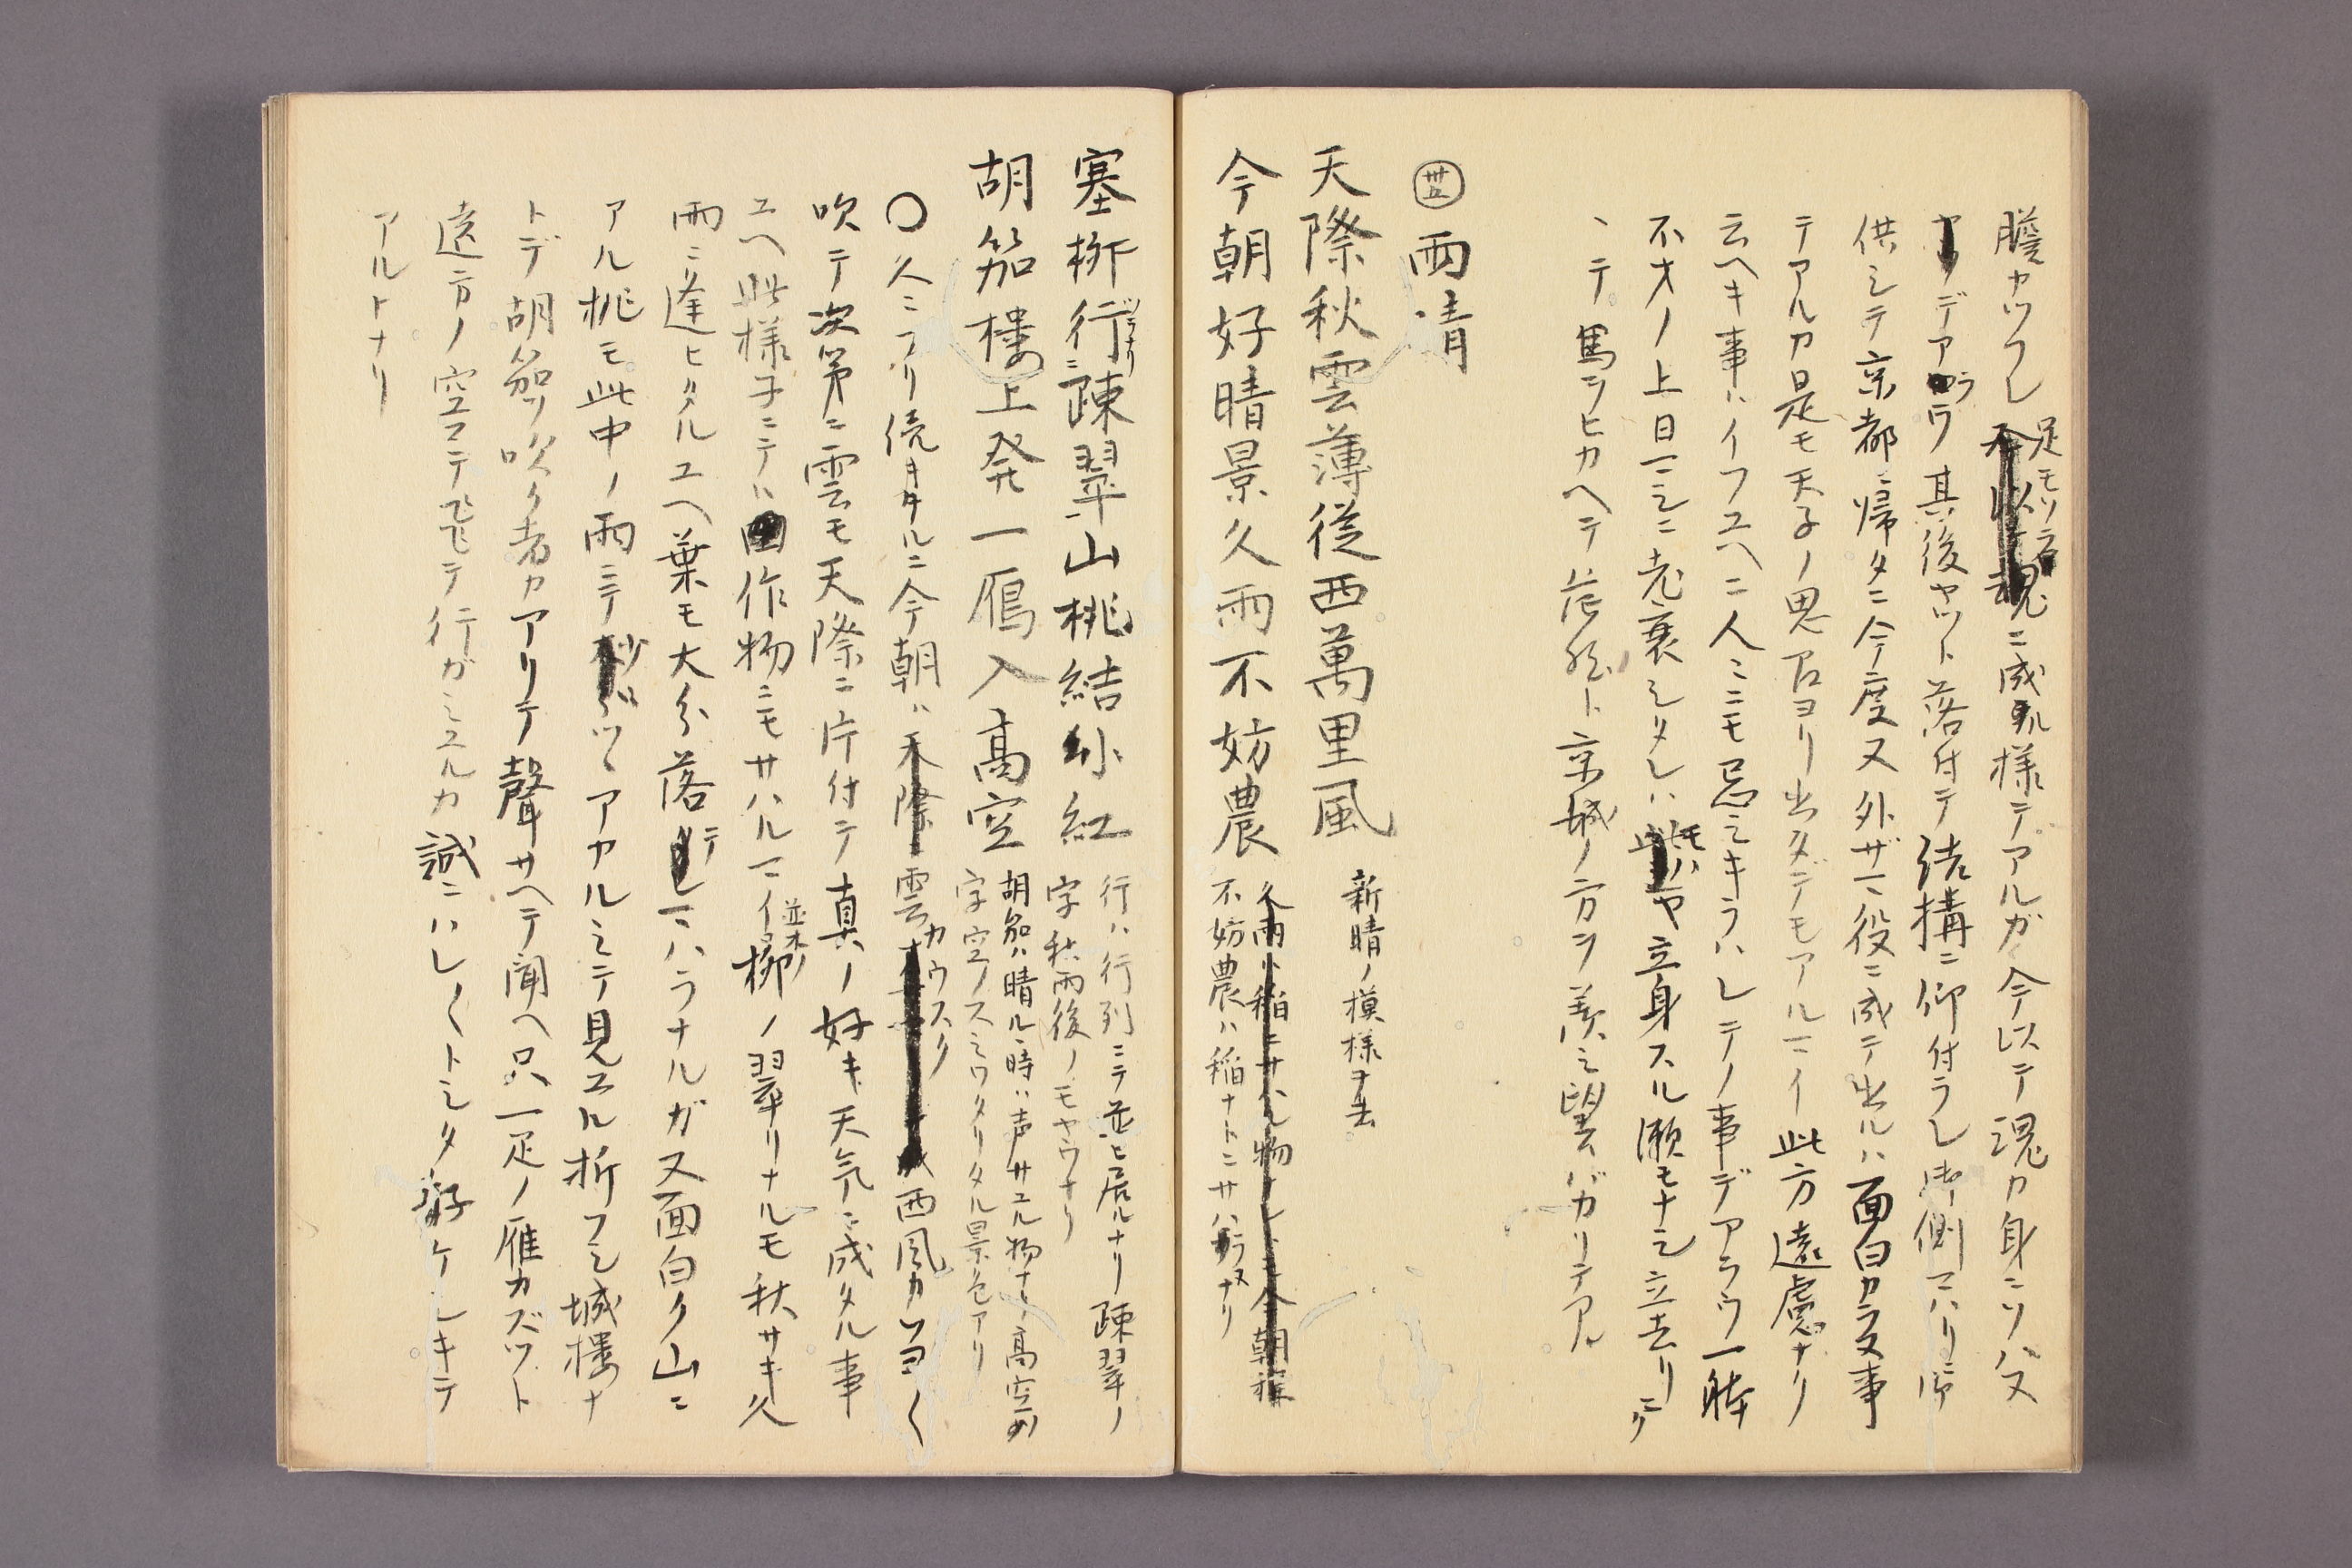 膽カツフレ足モソラ魂ニ成ル様テアルガ今以テ魂カ身ニソハヌ
デアラウ其後ヤット落付テ結構ニ仰付ラレ御側マハリ御
供シテ京都ニ帰タニ今度又外ザマ役ニ成テ出ルハ面白カラヌ事
テアルカ是モ天子ノ思召ヨリ出タデモアルマイ此方遠慮ナリ
云ヘキ事ハイフユヘニ人ミニモ忌ミキラハレテノ事デアラウ一躰
不才ノ上日マシニ老衰シタレハモハヤ立身スル瀬モナシ立去リニク
ヽテ馬ヲヒカヘテ茫然ト京城ノ方ヲ羨シ望ムバカリテアル
卅五 雨晴
天際秋雲薄從西萬里風 新晴ノ模様ナ
今朝好晴景久雨不妨農
久雨ハ稲ニサハル物ナレトモ今朝
不妨農ハ稲ナトニサハラヌナリ
塞栁行ニ疎翠山桃結小紅
行ハ行列ニテ並ヒ居ルナリ疎翠ノ
字秋雨後ノモヤウナリ
胡笳樓上発一鴈入高空
胡笳ハ晴ル時ハ声サエル物ナリ高空ノ
字空ノスミワタリタル景色アリ
〇久ミフリ続キタルニ今朝ハ天際雲カウスク西風カツヨク
吹テ次第ニ雲モ天際ニ片付テ真ノ好キ天気ニ成タル事
ユヘ此様子ニテハ田作物ニモサハルマイ並木ノ栁ノ翠リナルモ秋サキ久
雨ニ逢ヒタルユヘ葉モ大分落テマハラナルガ又面白ク山ニ
アル桃モ此中ノ雨ニテ少ヅヽアカルミテ見ユル折フシ城樓ナ
トデ胡笳ヲ吹ク者カアリテ聲サヘテ聞ヘ只一疋ノ雁カズット
遠方ノ空マテ飛テ行ガミユルカ誠ニハレ〱トシタ好ケシキテ
アルトナリ